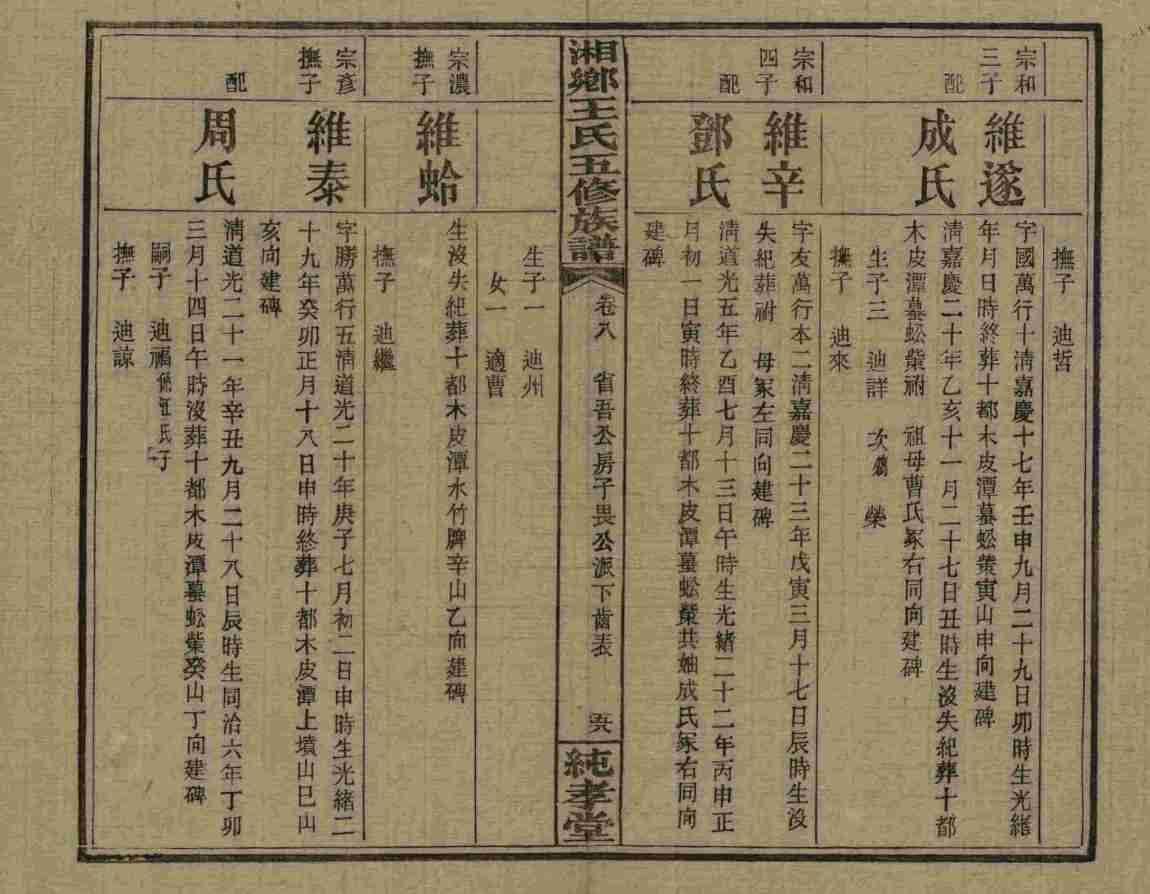 撫子　迪哲
宗和三子
維遂
字國萬行十清嘉慶十七年壬申九月二十九日卯時生光緒
年月日時終葬十都木皮潭墓蚣螢寅山申向建碑
配
成氏
清嘉慶二十年乙亥十一月二十七日丑時生沒失紀葬十都
木皮潭墓蚣螢祔　祖母曹氏冢右同向建碑
生子三　迪詳　次殤　榮
撫子　迪來
宗和四子
維辛
字友萬行本二清嘉慶二十三年戊寅三月十七日辰時生沒
失紀葬祔　母冢左同向建碑
配
鄧氏
清道光五年乙酉七月十三日午時生光緒二十二年丙申正
月初一日寅時終葬十都木皮潭墓蚣螢共妯成氏冢右同向
建碑
湘鄉王氏五修族譜
卷八　省吾公房子畏公派下齒表
純孝堂
生子一　迪州
女一　適曹
宗濃撫子
維蛤
生沒失紀葬十都木皮潭水竹牌辛山乙向建碑
撫子　迪繼
宗彥撫子
維泰
字勝萬行五清道光二十年庚子七月初二日申時生光緒二
十九年癸卯正月十八日申時終葬十都木皮潭上墳山巳山
亥向建碑
配
周氏
清道光二十一年辛丑九月二十八日辰時生同治六年丁卯
三月十四日午時沒葬十都木皮潭墓蚣螢癸山丁向建碑
嗣子　迪福
撫子　迪諒